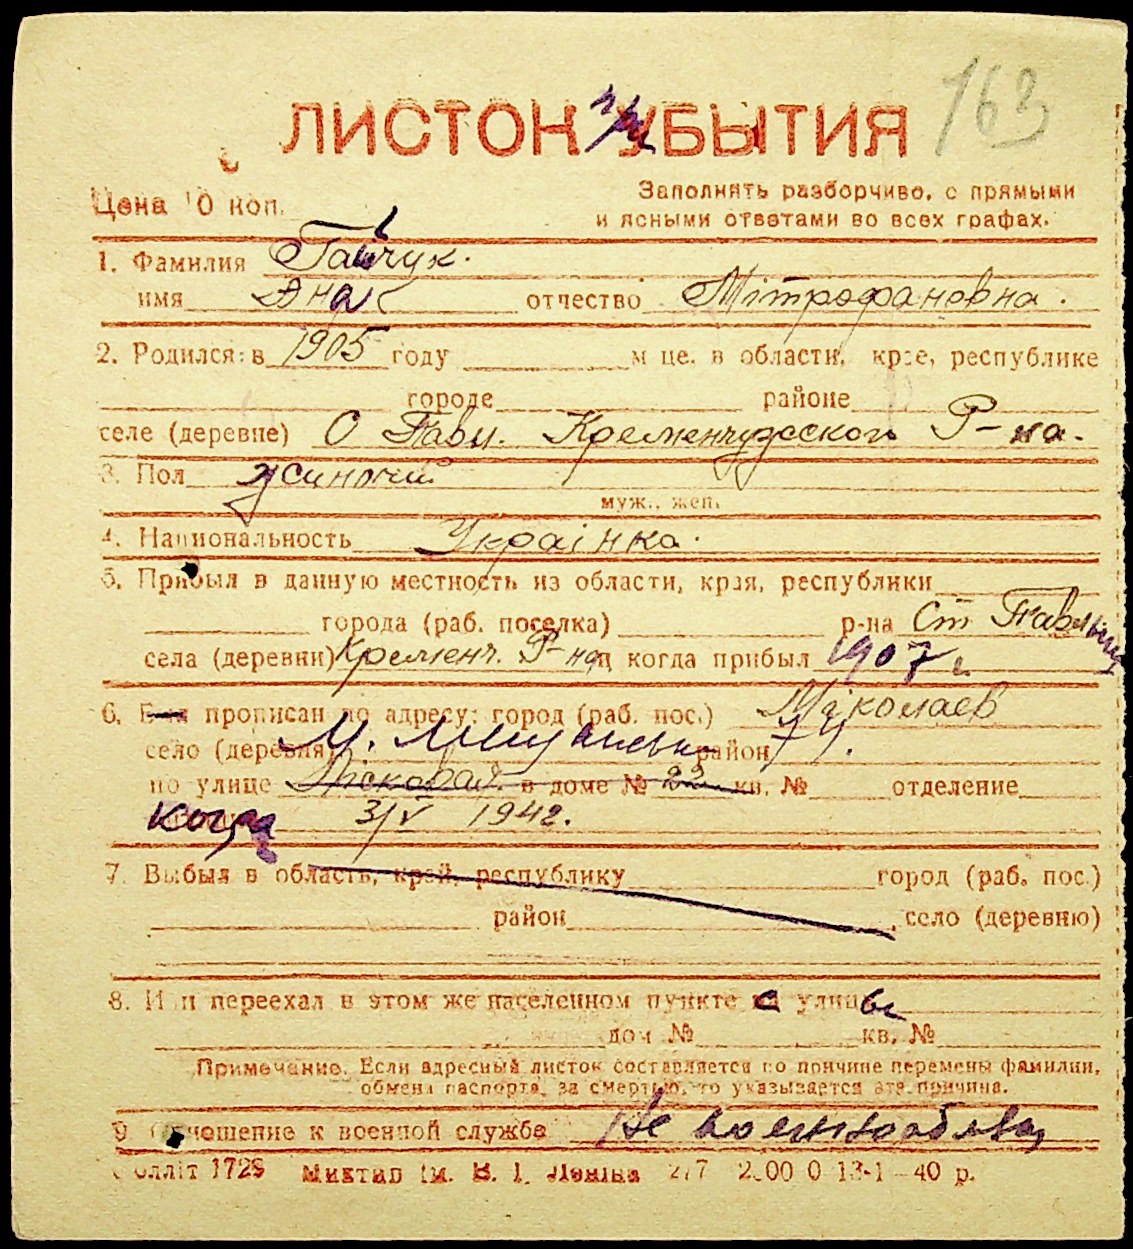 163
ЛИСТОК УБЫТИЯ
Цена 10 коп.
Заполнять разборчиво, с прямыми
и ясными ответами во всех графах.
1. Фамилия Гайчук.
имя Анна отчество Мітрофановна.
2. Родился: в 1905 году м це, в области, крае, республике
городе районе
селе (деревне) С Павл. Кременчугского Р-на.
3. Пол жиночий
муж., жен.
4. Национальность Українка.
5. Прибыл в данную местность из области, края, республики
города (раб. поселка) р-на Ст Павлыш
села (деревни) Кременч. Р-на когда прибыл 1907 г.
6. Был прописан по адресу: город (раб. пос.) Міколаев
село (деревня) район
по улице Пісковая в доме № 22 кв. № отделение
когда 3/V 1942.
7. Выбыл в область, край, республику город (раб. пос.)
район село (деревню)
8. Или переехал в этом же населенном пункте с улицы
дом № кв. №
Примечание. Если адресный листок составляется по причине перемены фамилии,
обмена паспорта, за смертью, то указывается эта причина.
9. Отношение к военной службе Не военнообяз
оллiт 1729 Миктип ім. В. І. Леніна 277 2000 0 13-1-40 р.